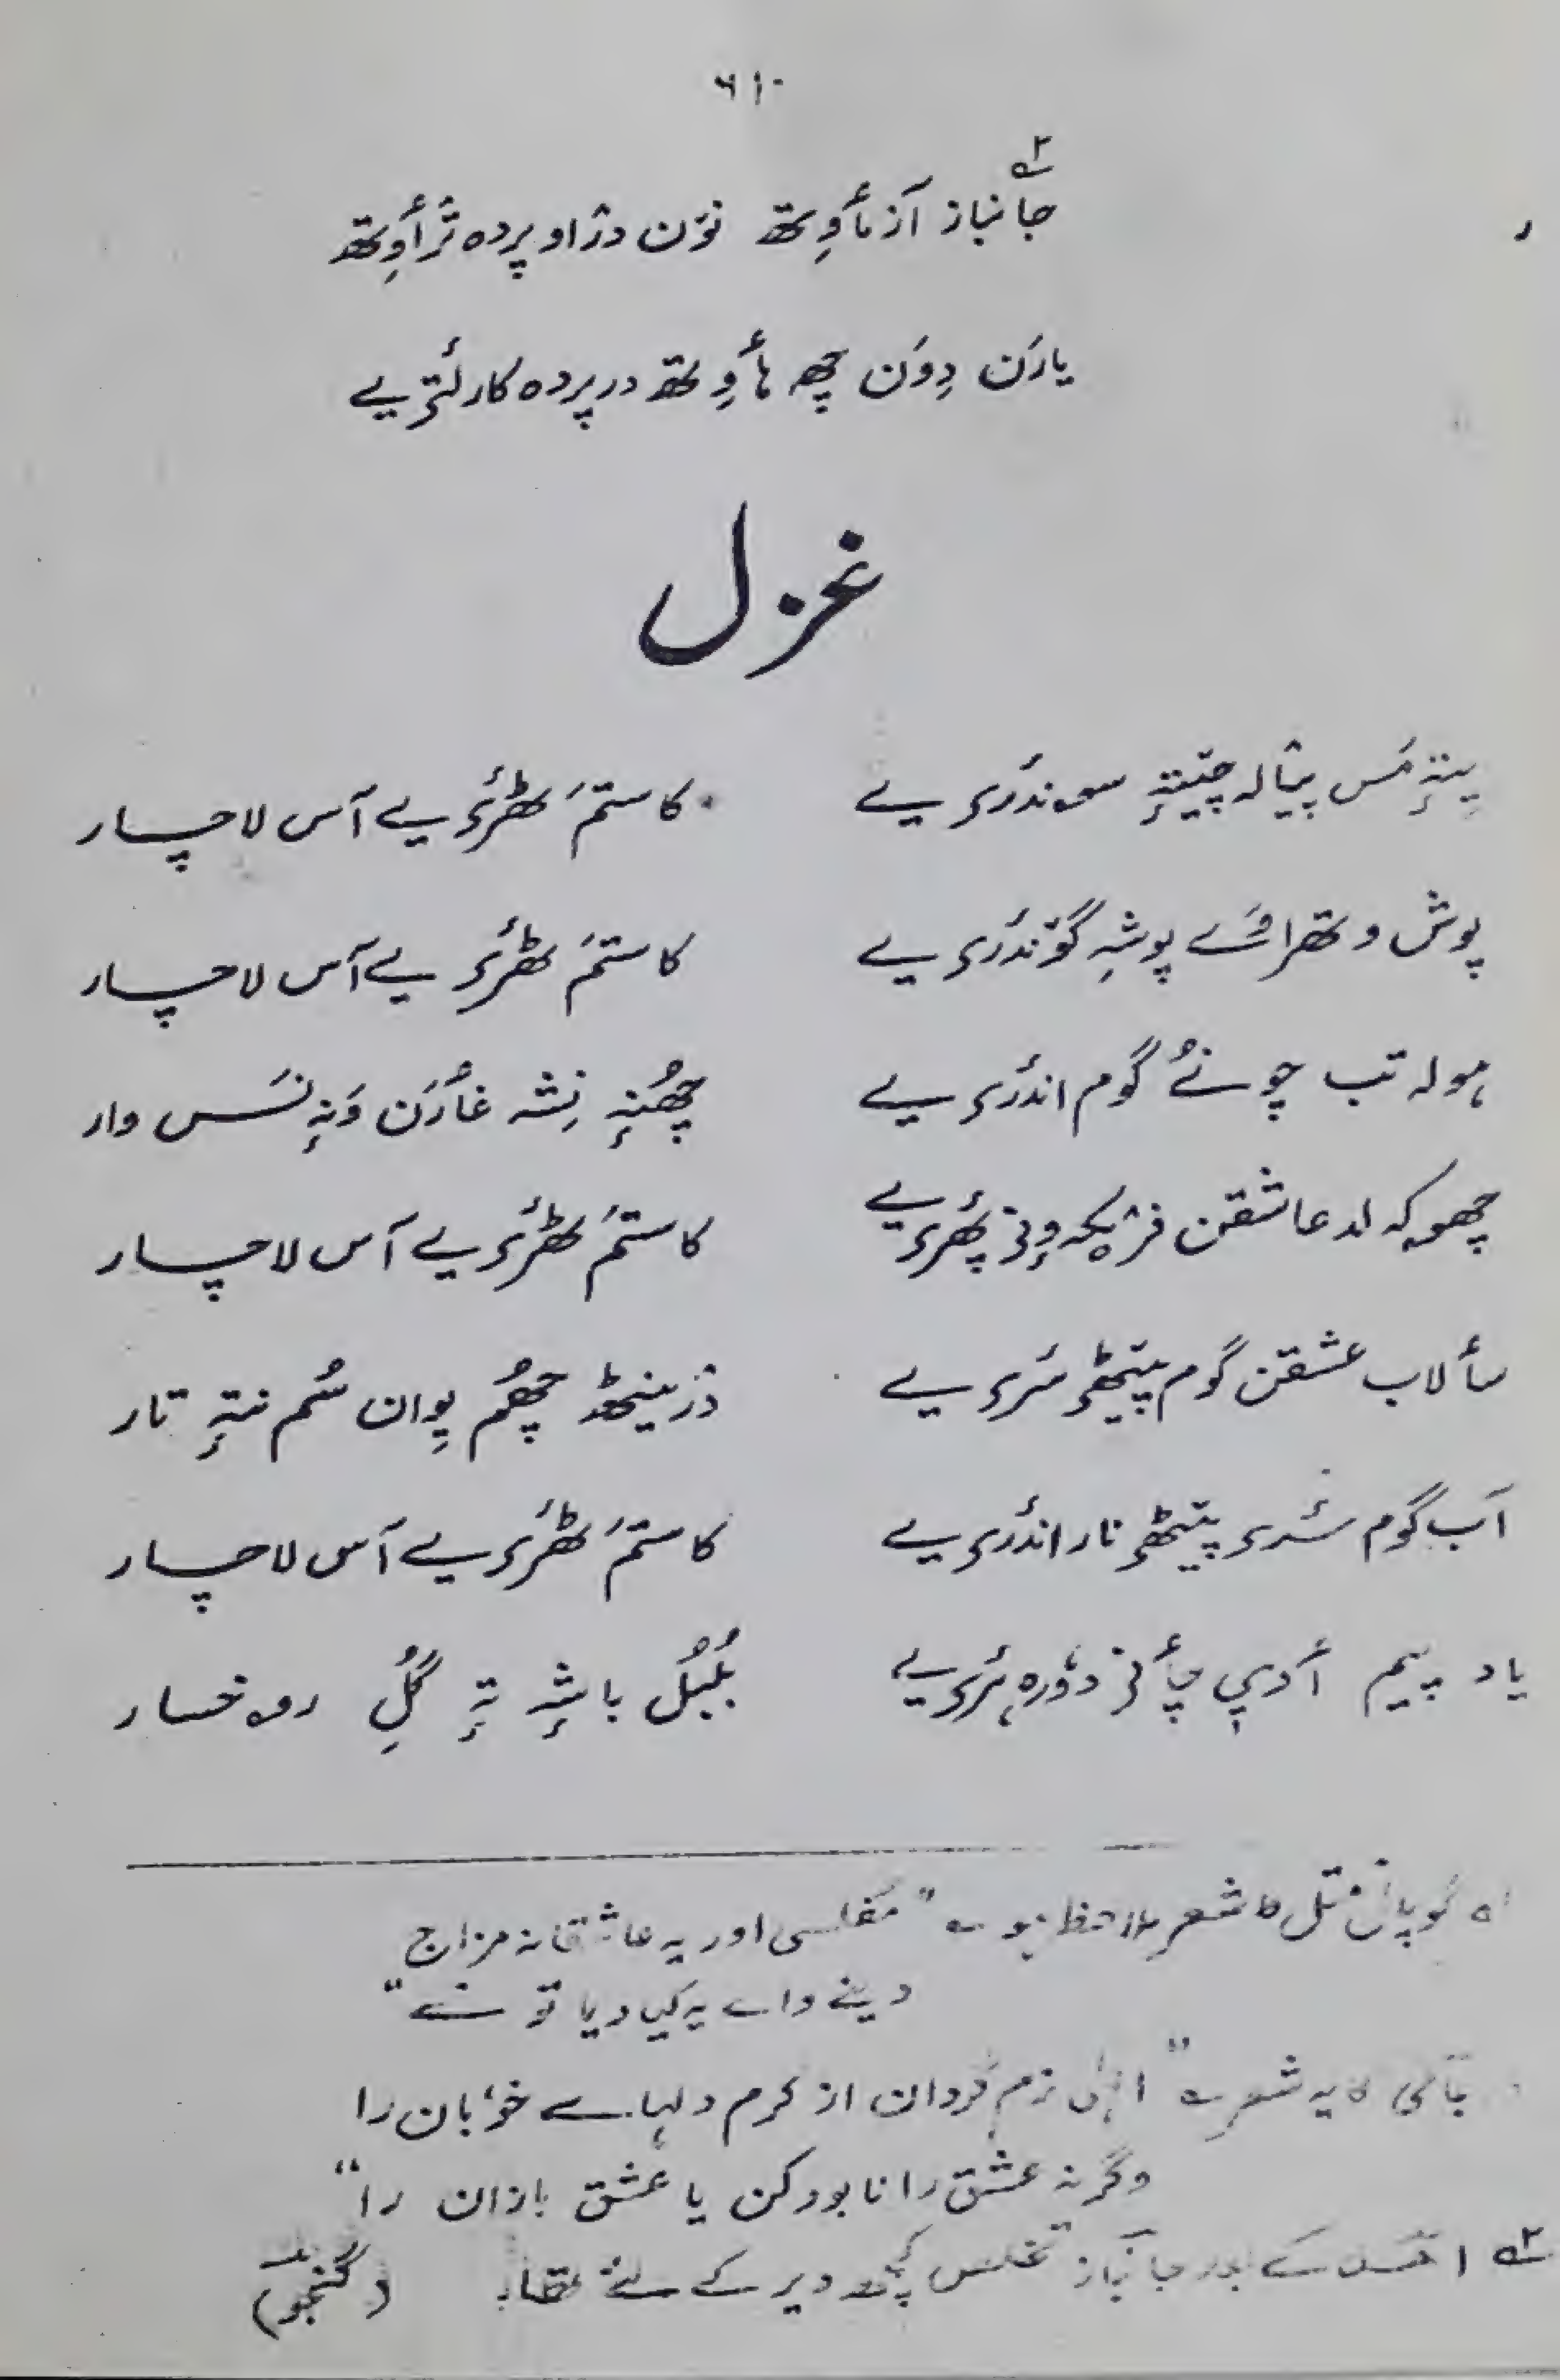 ۶۱۰
جانباز۲ آزمٲوِتھ نوٚن دزاو پردہ ترٛٲوِتھ
یارَن دِوَن چھِ ہٲوِتھ در پردہ کار لَتریے
غزل
پیتہِ مَس پیٛالہ چیتہِ سوندَری یے کاستمَ ٹھٔری یے آس لاچار
پوش وتھراوَے پوشہِ گوٚندَری یے کاستمَ ٹھٔری یے آس لاچار
ہولہ تب چونُے گوم اندٔری یے چھُنہِ نِشہ غٲرَن وَنہِ نَس وار
چھوکہ لد عاشقن فرٛیکہ وٕنۍ پھٔری یے کاستمَ ٹھٔری یے آس لاچار
سٲلاب عشقن گوم پیٹھۍ سَری یے وزینٹھ چھُم پِوان سُم نتہٕ تار
آب گوم سَری پیٹھۍ نار اندٔری یے کاستمَ ٹھٔری یے آس لاچار
یاد پییم أدۍ چٲنۍ دۄرہ ہَری یے بُلبُل باشہِ تہٕ گُلِ روخسار
گوپال متل کا شعر ملاحظہ ہو ؎ "مفلسی اور یہ عاشقانہ مزاج
دینے والے یہ کیا دیا تو نے"
جامی کا یہ شعر ؎ "الہٰی نرم گردان از کرم دلہاے خوباں را
وگرنہ عشق را نابود کن یا عشق بازان را"
۲؎ کے بعد جانباز تخلص کچھ دیر کے لئے تھا۔ (گنجو)